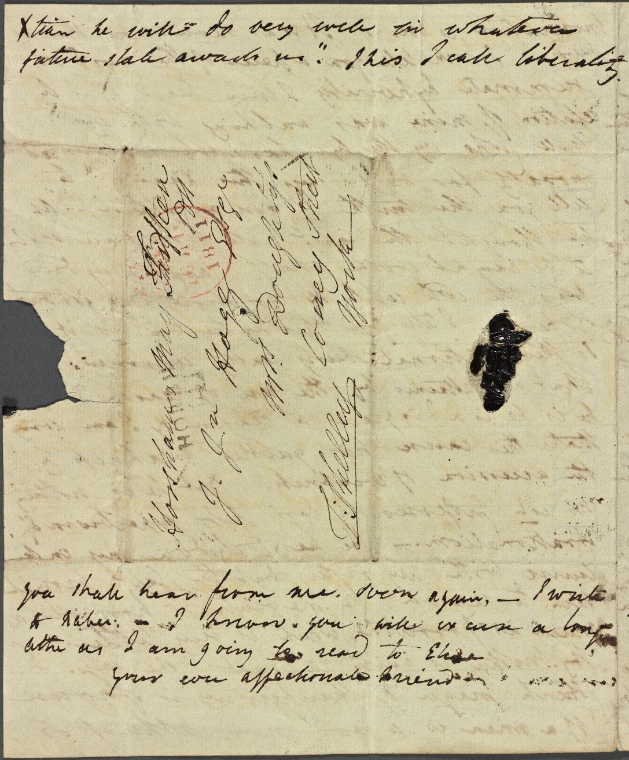 Xtian he will do very well in whatever
future state awards us". This I call liberality.
Horsham May Fifteen
1811
T. J. Hogg Esqr
Mrs. Doughty's
Coney Street
York
T. Shelley
HORSHAM
1811
you shall hear from me soon again. — I write
to — I know you will excuse a long
letter as I am going to read to Eliza
Your ever affectionate friend